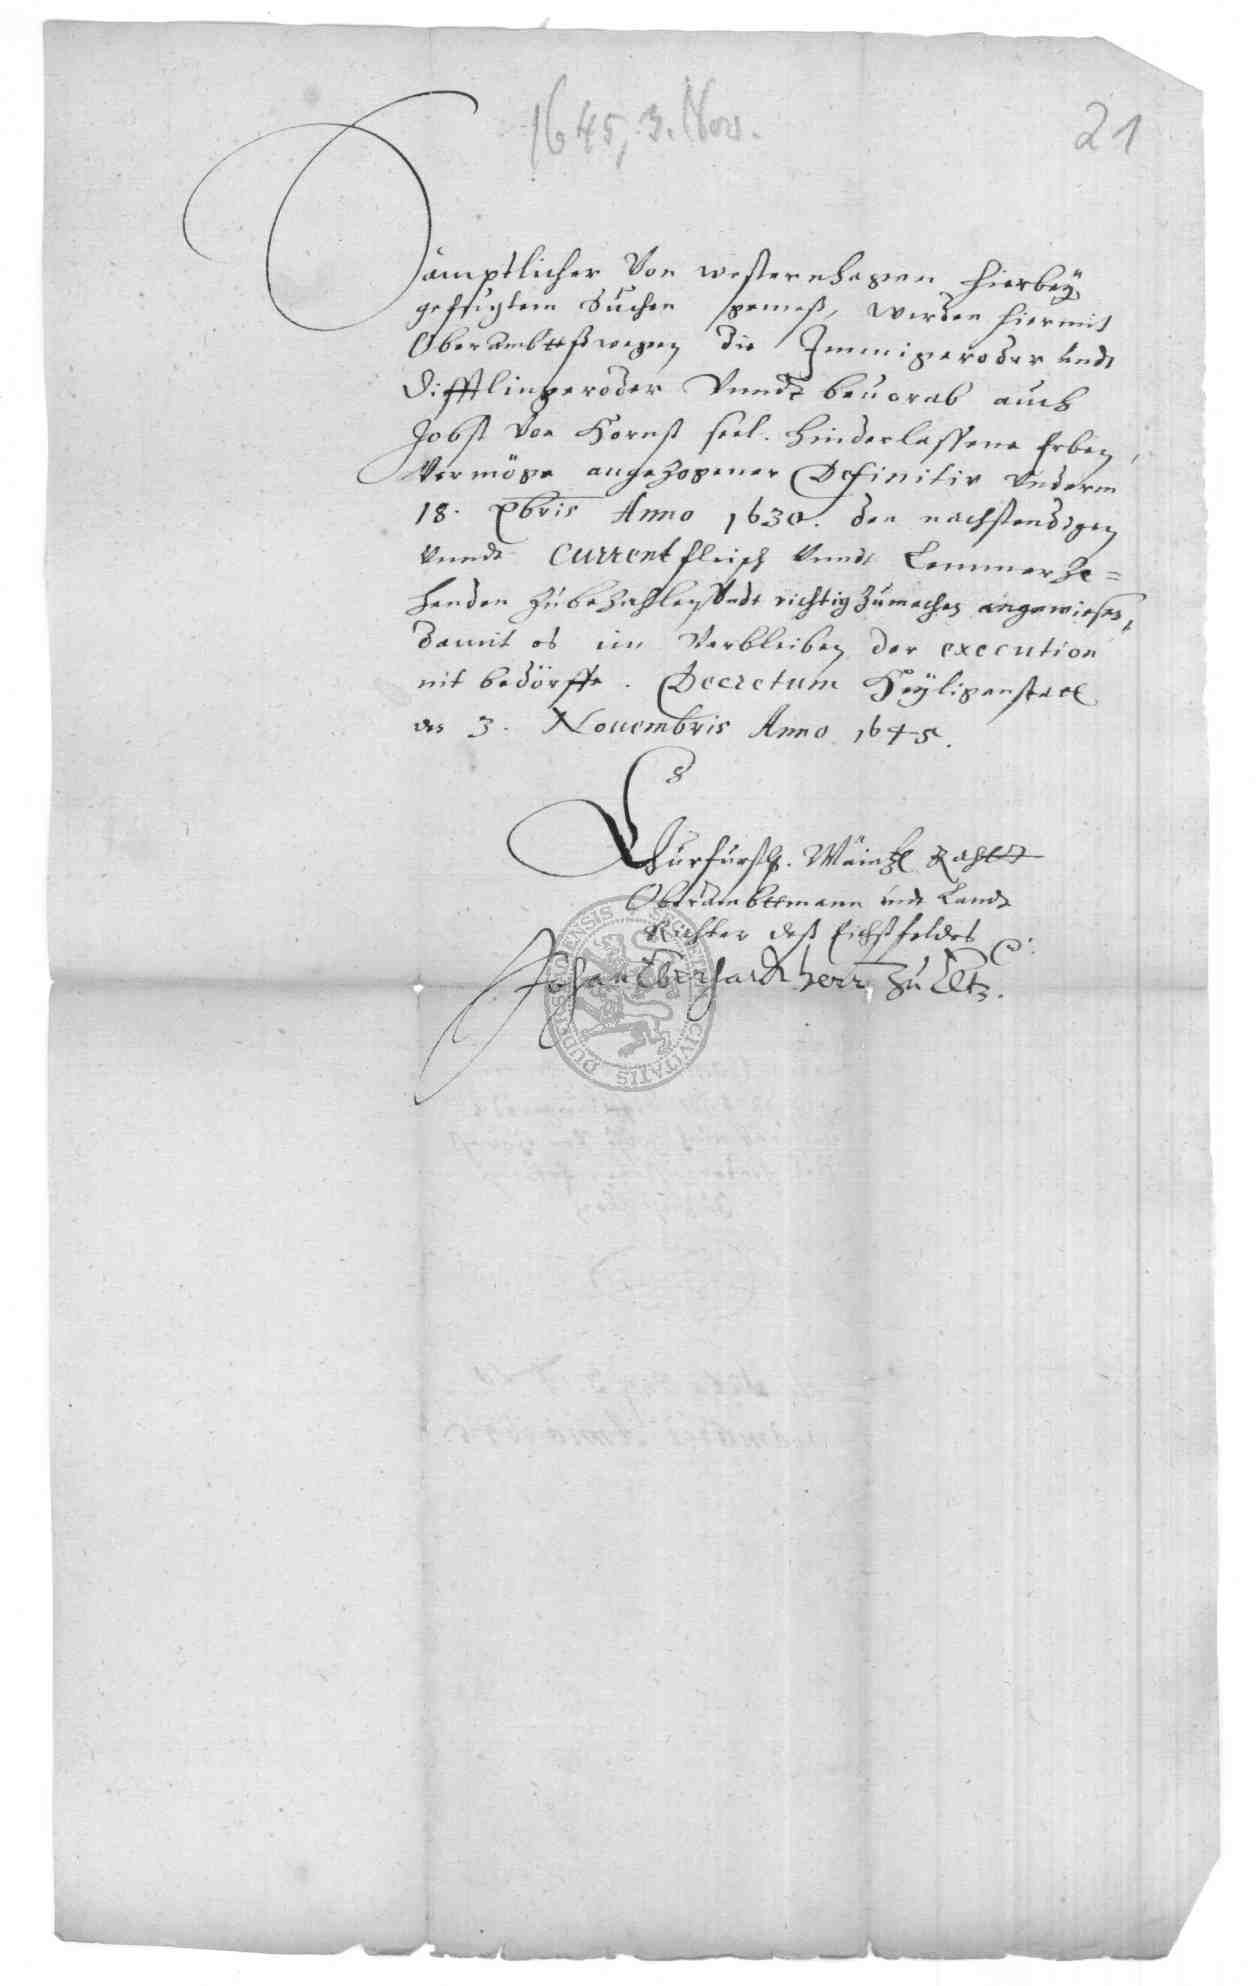 1645, 3. Nov.
21
Sämptlicher Von westernhagen hierbeÿ
gefugtem Suchen gemeß, werden hiermit
Oberambttßwegen die Immigeroder undt
Difftlingeroder Vnndt beuorab auch
Jobst Von Hornß seel. hinderlassene Erben,
Vermöge angezogener Definitiv Vnderm
18. Xbris Anno 1630. den nachstendigen
Vnndt Current fleisch Vnndt Lemmerze=
henden zubezahlen Vndt richtig zumachen angewiesen,
damit es im Verbleiben der execution
nit bedörffe. Decretum Heyligenstadt
den 3. Nouembris Anno 1645.
Churfürstl. Mäintzl. Raht
Oberambttmann undt Landt
Richter deß Eichsfeldes
Johan Eberhardt herr zu Eltz.
SECRETUM CIVITATIS DUDERSTADENSIS